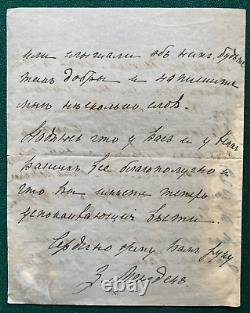 или слыхали объ нихъ, будьте
такъ добры и напишите
мнѣ нѣсколько словъ.
Надѣюсь что у Васъ и у
Вашихъ все благополучно и
что Вы имѣете теперь
успокаивающія вѣсти.
Сердечно жму Вамъ руку
З.